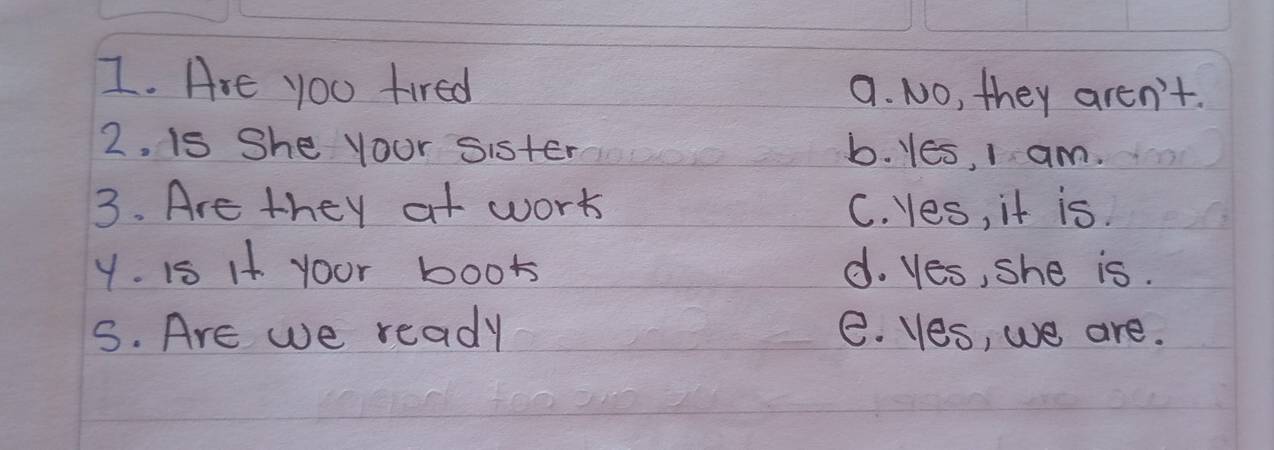 1. Are you tired a. No, they aren't.
2. Is She your sister b. Yes, I am.
3. Are they at work c. Yes, it is.
4. Is it your book d. Yes, she is.
5. Are we ready e. Yes, we are.